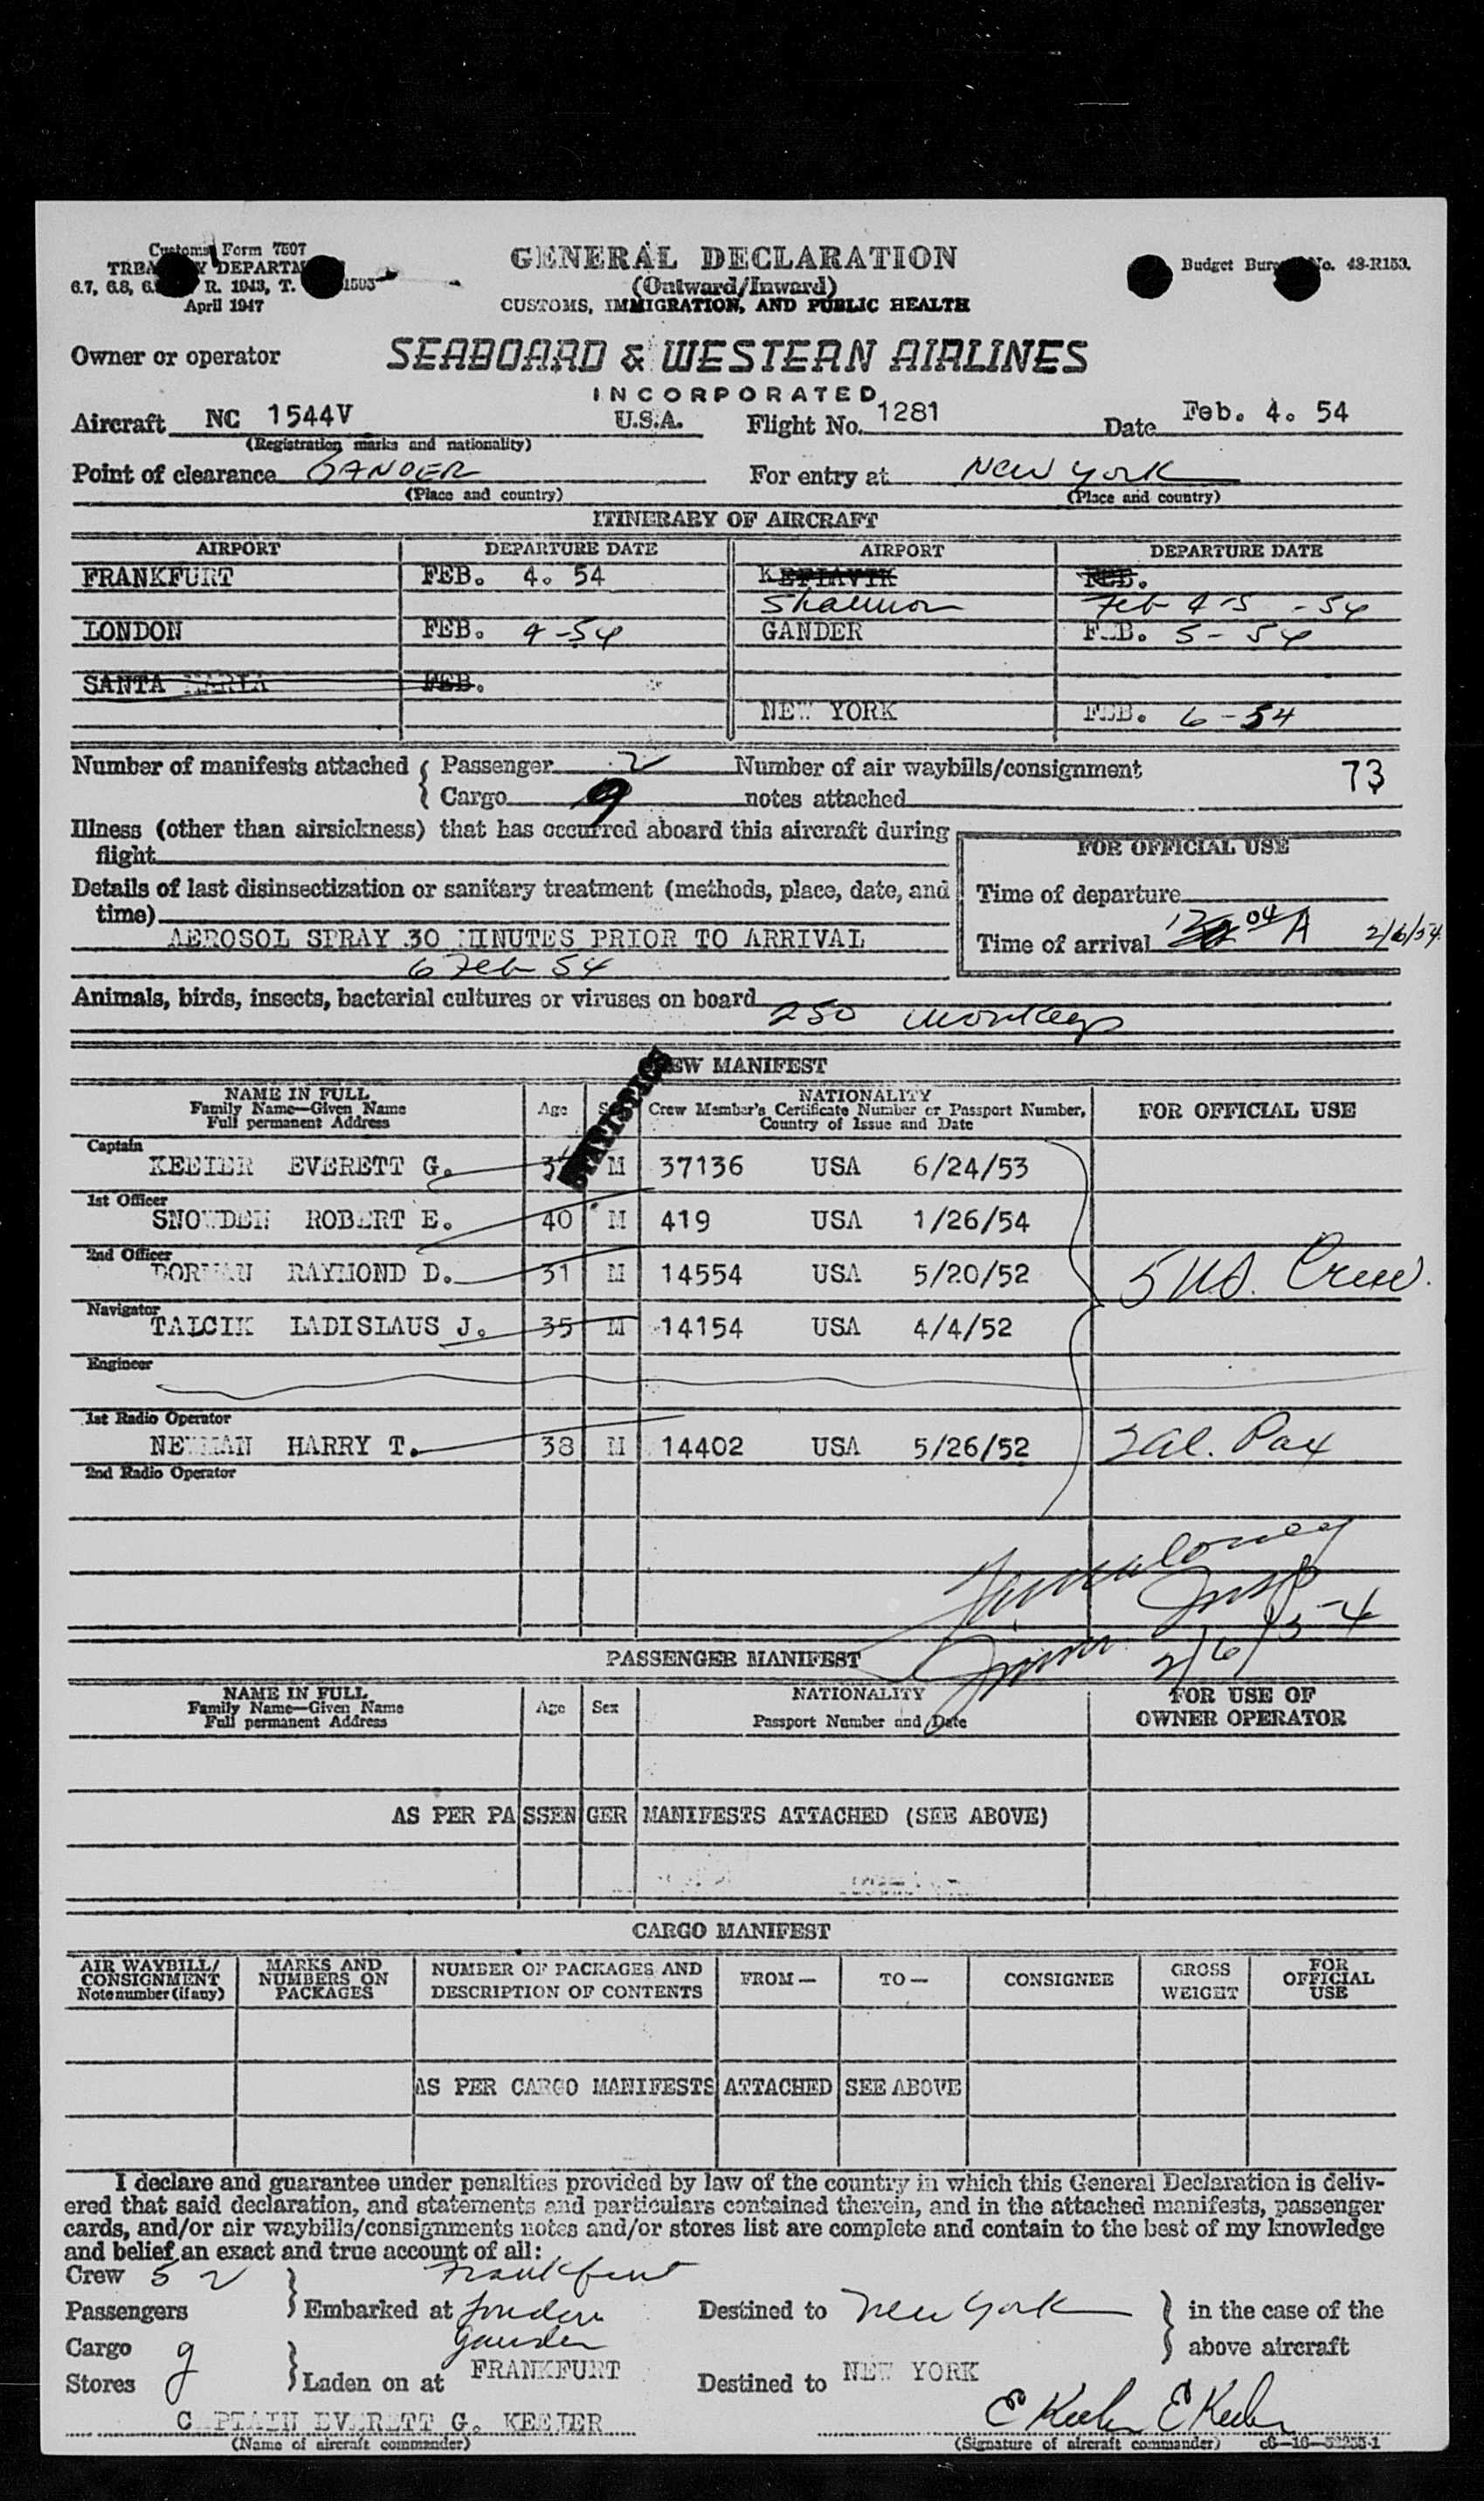 Customs Form 7507
TREASURY DEPARTMENT
6.7, 6.8, R. 1943, T.
April 1947
GENERAL DECLARATION
(Outward/Inward)
CUSTOMS, IMMIGRATION, AND PUBLIC HEALTH
Budget Bureau No. 48-R153.
Owner or operator SEABOARD & WESTERN AIRLINES
INCORPORATED
Aircraft NC 1544V U.S.A. Flight No. 1281 Date Feb. 4. 54
(Registration marks and nationality)
Point of clearance GANDER For entry at New York
(Place and country) (Place and country)
ITINERARY OF AIRCRAFT
AIRPORT DEPARTURE DATE AIRPORT DEPARTURE DATE
FRANKFURT FEB. 4. 54 KEFLAVIK FEB.
Shannon Feb 4-5 -54
LONDON FEB. 4-54 GANDER FEB. 5-54
SANTA MARIA FEB.
NEW YORK FEB. 6-54
Number of manifests attached { Passenger 2 Number of air waybills/consignment 73
{ Cargo 9 notes attached
Illness (other than airsickness) that has occurred aboard this aircraft during
flight
FOR OFFICIAL USE
Details of last disinsectization or sanitary treatment (methods, place, date, and
time)
Time of departure
AEROSOL SPRAY 30 MINUTES PRIOR TO ARRIVAL
Time of arrival 04 A 2/6/54
6 Feb 54
Animals, birds, insects, bacterial cultures or viruses on board 250 monkeys
CREW MANIFEST
STATISTICS
NAME IN FULL
Family Name—Given Name
Full permanent Address
Age
Sex
NATIONALITY
Crew Member's Certificate Number or Passport Number,
Country of Issue and Date
FOR OFFICIAL USE
Captain
KEELER EVERETT G. M 37136 USA 6/24/53
1st Officer
SNOWDEN ROBERT E. 40 M 419 USA 1/26/54
2nd Officer
DORMAN RAYMOND D. 31 M 14554 USA 5/20/52
5 US. Crew.
Navigator
TALCIK LADISLAUS J. 35 M 14154 USA 4/4/52
Engineer
1st Radio Operator
NEWMAN HARRY T. 38 M 14402 USA 5/26/52
2 al. Pax
2nd Radio Operator
Insp
2/6/54
PASSENGER MANIFEST
NAME IN FULL
Family Name—Given Name
Full permanent Address
Age
Sex
NATIONALITY
Passport Number and Date
FOR USE OF
OWNER OPERATOR
AS PER PASSENGER MANIFESTS ATTACHED (SEE ABOVE)
CARGO MANIFEST
AIR WAYBILL/
CONSIGNMENT
Note number (if any)
MARKS AND
NUMBERS ON
PACKAGES
NUMBER OF PACKAGES AND
DESCRIPTION OF CONTENTS
FROM—
TO—
CONSIGNEE
GROSS
WEIGHT
FOR
OFFICIAL
USE
AS PER CARGO MANIFESTS ATTACHED SEE ABOVE
I declare and guarantee under penalties provided by law of the country in which this General Declaration is deliv-
ered that said declaration, and statements and particulars contained therein, and in the attached manifests, passenger
cards, and/or air waybills/consignments notes and/or stores list are complete and contain to the best of my knowledge
and belief an exact and true account of all:
Crew 5 2 Frankfurt
Passengers } Embarked at London Destined to New York } in the case of the
Gander
Cargo 9 above aircraft
Stores } Laden on at FRANKFURT Destined to NEW YORK
CAPTAIN EVERETT G. KEELER E Keeler E Keeler
(Name of aircraft commander) (Signature of aircraft commander) c6—16—52255-1